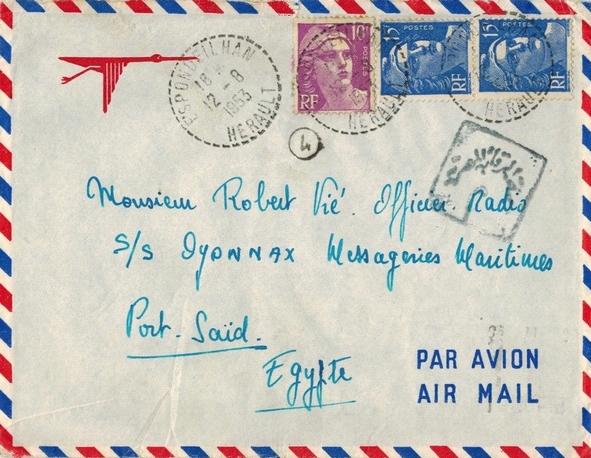 ESPONDEILHAN
18 H
12 - 8
1953
HERAULT
10F
POSTES
RF
15F
POSTES
RF
15F
POSTES
RF
HERAULT
HERAULT
4
Monsieur Robert Vié. Officier Radio
S/S OYONNAX Messageries Maritimes
Port-Saïd.
Egypte
PAR AVION
AIR MAIL